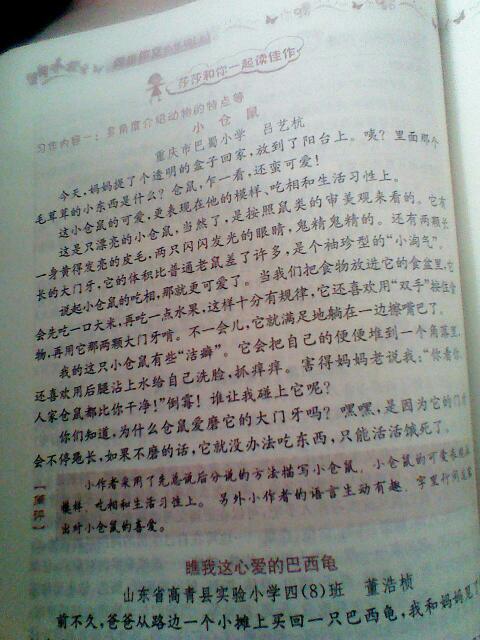 莎莎和你一起读佳作
习作内容一：多角度介绍动物的特点等
小仓鼠
重庆市巴蜀小学 吕艺杭
今天，妈妈提了个透明的盒子回家，放到了阳台上。咦？里面那个
毛茸茸的小东西是什么？仓鼠，乍一看，还蛮可爱！
这小仓鼠的可爱，更表现在他的模样、吃相和生活习性上。
这是只漂亮的小仓鼠，当然了，是按照鼠类的审美观来看的。它有
一身黄得发亮的皮毛，两只闪闪发光的眼睛，鬼精鬼精的。还有两颗长
长的大门牙，它的体积比普通老鼠差了许多，是个袖珍型的“小淘气”。
说起小仓鼠的吃相，那就更可爱了。当我们把食物放进它的食盆里，它
会先吃一口大米，再吃一点水果，这样十分有规律，它还喜欢用“双手”按住食
物，再用它那两颗大门牙啃。不一会儿，它就满足地躺在一边擦嘴巴了。
我的这只小仓鼠有些“洁癖”。它会把自己的便便堆到一个角落里，
还喜欢用后腿沾上水给自己洗脸，抓痒痒。害得妈妈老说我：“你看你，
人家仓鼠都比你干净！”倒霉！谁让我碰上它呢？
你们知道，为什么仓鼠爱磨它的大门牙吗？嘿嘿，是因为它的门牙
会不停延长，如果不磨的话，它就没办法吃东西，只能活活饿死了。
小作者采用了先总说后分说的方法描写小仓鼠，小仓鼠的可爱表现在
模样、吃相和生活习性上。另外小作者的语言生动有趣，字里行间流露
出对小仓鼠的喜爱。
瞧我这心爱的巴西龟
山东省高青县实验小学四(8)班 董浩桢
前不久，爸爸从路边一个小摊上买回一只巴西龟，我和妈妈见了